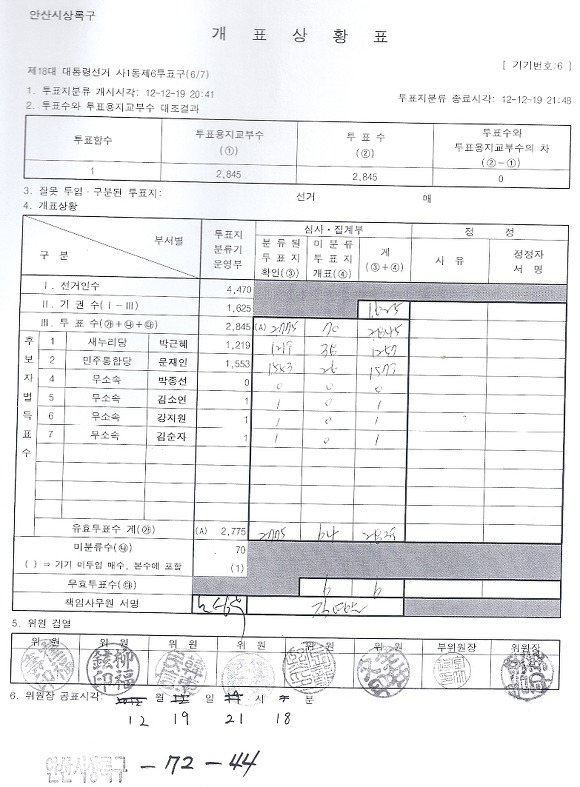 안산시상록구
개 표 상 황 표
[ 기기번호:6 ]
제18대 대통령선거 사1동제6투표구(6/7)
1. 투표지분류 개시시각: 12-12-19 20:41
투표지분류 종료시각: 12-12-19 21:48
2. 투표수와 투표용지교부수 대조결과
투표함수 투표용지교부수 (①) 투 표 수 (②) 투표수와 투표용지교부수의 차 (②-①)
1 2,845 2,845 0
3. 잘못 투입·구분된 투표지: 선거 매
4. 개표상황
구 분 부서별 투표지 분류기 운영부 심사·집계부 정 정
분 류 된 투 표 지 확인(③) 미 분 류 투 표 지 개표(④) 계 (③+④) 사 유 정정자 서 명
Ⅰ. 선거인수 4,470
Ⅱ. 기 권 수 (Ⅰ-Ⅲ) 1,625 1,625
Ⅲ. 투 표 수(㉮+㉯+㉰) 2,845 (A) 2775 70 2845
후보자별득표수
1 새누리당 박근혜 1,219 1219 38 1257
2 민주통합당 문재인 1,553 1553 26 1579
4 무소속 박종선 0 0 0 0
5 무소속 김소연 1 1 0 1
6 무소속 강지원 1 1 0 1
7 무소속 김순자 1 1 0 1
유효투표수 계(㉮) (A) 2,775 2775 64 2839
미분류수(㉯) 70
( ) ⇒ 기기 미투입 매수, 본수에 포함 (1)
무효투표수(㉰) 6 6
책임사무원 서명
5. 위원 검열
위 원 위 원 위 원 위 원 위 원 위 원 부위원장 위원장
6. 위원장 공표시각: 월 일 시 분
12 19 21 18
안산시상록구 - 72 - 44